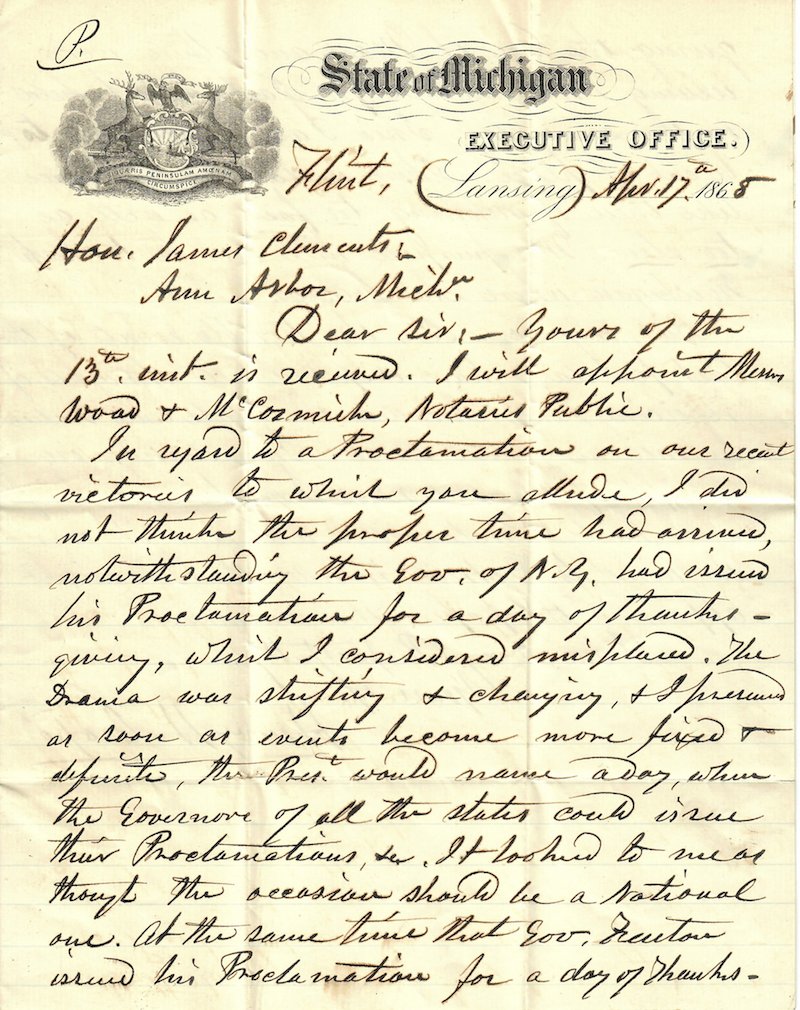 P.
State of Michigan
EXECUTIVE OFFICE.
SI QUÆRIS PENINSULAM AMŒNAM
CIRCUMSPICE
Flint, (Lansing) Apr. 17th 1865
Hon. James Clements,
Ann Arbor, Mich.
Dear Sir, – Yours of the
13th. inst. is received. I will appoint Messrs
Wood & McCormick, Notaries Public.
In regard to a Proclamation on our recent
victories to which you allude, I did
not think the proper time had arrived,
notwithstanding the Gov. of N.Y. had issued
his Proclamation for a day of thanks-
giving, which I considered misplaced. The
Drama was shifting & changing, & I presumed
as soon as events become more fixed &
definite, the Prest. would name a day, when
the Governors of all the states could issue
their Proclamations, &c. It looked to me as
though the occasion should be a National
one. At the same time that Gov. Fenton
issued his Proclamation for a day of Thanks-